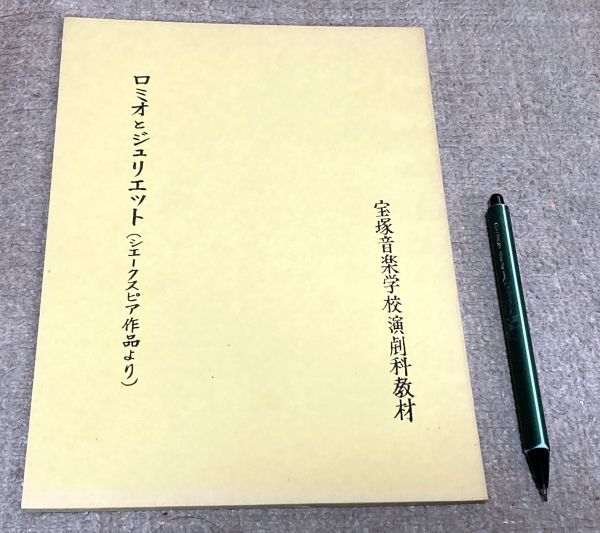 宝塚音楽学校演劇科教材
ロミオとジュリエット(シエークスピア作品より)